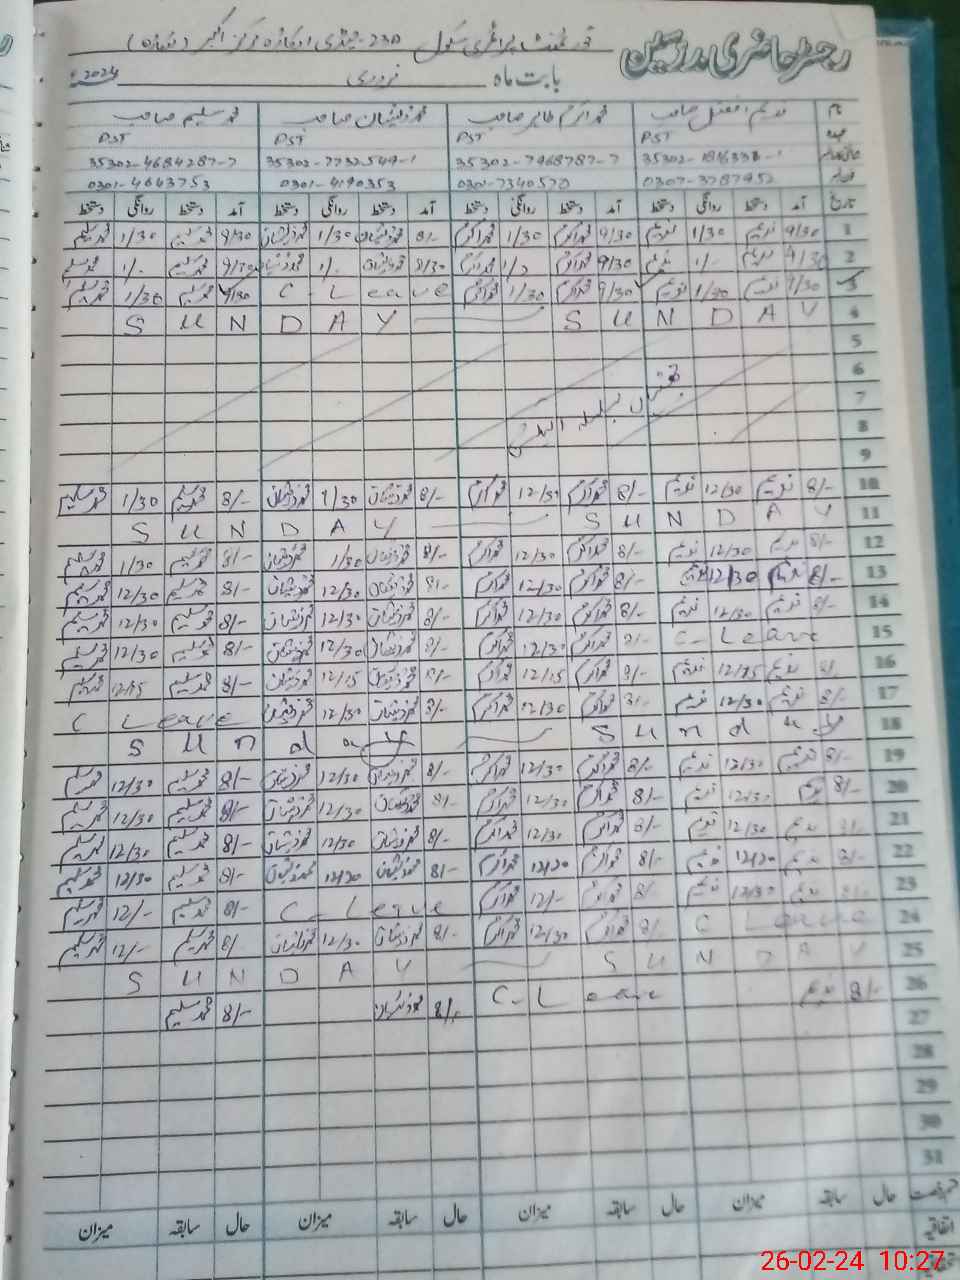 رجسٹر حاضری مدرسین
گورنمنٹ پرائمری سکول
بابت ماہ فروری 2024ء
نام ندیم افضل صاحب محمد اکرم طاہر صاحب محمد ذیشان صاحب محمد سلیم صاحب
PST PST PST PST
35302-7732549-1 35302-4684287-7
0307-3787952 0301-7340570 0301-4190353 0301-4643753
تاریخ آمد دستخط روانگی دستخط آمد دستخط روانگی دستخط آمد دستخط روانگی دستخط آمد دستخط روانگی دستخط
1 9/30 ندیم 1/30 ندیم 9/30 محمد اکرم 1/30 محمد اکرم 8/- محمد ذیشان 1/30 محمد ذیشان 9/30 محمد سلیم 1/30 محمد سلیم
2 9/30 ندیم 1/- ندیم 9/30 محمد اکرم 1/- محمد اکرم 8/30 محمد ذیشان 1/- محمد ذیشان 9/30 محمد سلیم 1/- محمد سلیم
3 9/30 ندیم 1/30 ندیم 9/30 محمد اکرم 1/30 محمد اکرم C-Leave 9/30 محمد سلیم 1/30 محمد سلیم
4 SUNDAY SUNDAY
5
6
7
8
9
10 8/- ندیم 12/30 ندیم 8/- محمد اکرم 12/30 محمد اکرم 8/- محمد ذیشان 1/30 محمد ذیشان 8/- محمد سلیم 1/30 محمد سلیم
11 SUNDAY SUNDAY
12 8/- ندیم 12/30 ندیم 8/- محمد اکرم 12/30 محمد اکرم 8/- محمد ذیشان 1/30 محمد ذیشان 8/- محمد سلیم 1/30 محمد سلیم
13 8/- ندیم 12/30 ندیم 8/- محمد اکرم 12/30 محمد اکرم 8/- محمد ذیشان 12/30 محمد ذیشان 8/- محمد سلیم 12/30 محمد سلیم
14 8/- ندیم 12/30 ندیم 8/- محمد اکرم 12/30 محمد اکرم 8/- محمد ذیشان 12/30 محمد ذیشان 8/- محمد سلیم 12/30 محمد سلیم
15 C-Leave 8/- محمد اکرم 12/30 محمد اکرم 8/- محمد ذیشان 12/30 محمد ذیشان 8/- محمد سلیم 12/30 محمد سلیم
16 8/- ندیم 12/15 ندیم 8/- محمد اکرم 12/15 محمد اکرم 8/- محمد ذیشان 12/15 محمد ذیشان 8/- محمد سلیم 12/15 محمد سلیم
17 8/- ندیم 12/30 ندیم 8/- محمد اکرم 12/30 محمد اکرم 8/- محمد ذیشان 12/30 محمد ذیشان C Leave
18 Sunday Sunday
19 8/- ندیم 12/30 ندیم 8/- محمد اکرم 12/30 محمد اکرم 8/- محمد ذیشان 12/30 محمد ذیشان 8/- محمد سلیم 12/30 محمد سلیم
20 8/- ندیم 12/30 ندیم 8/- محمد اکرم 12/30 محمد اکرم 8/- محمد ذیشان 12/30 محمد ذیشان 8/- محمد سلیم 12/30 محمد سلیم
21 8/- ندیم 12/30 ندیم 8/- محمد اکرم 12/30 محمد اکرم 8/- محمد ذیشان 12/30 محمد ذیشان 8/- محمد سلیم 12/30 محمد سلیم
22 8/- ندیم 12/20 ندیم 8/- محمد اکرم 12/20 محمد اکرم 8/- محمد ذیشان 12/20 محمد ذیشان 8/- محمد سلیم 12/30 محمد سلیم
23 8/- ندیم 12/30 ندیم 8/- محمد اکرم 12/- محمد اکرم C-Leave 8/- محمد سلیم 12/- محمد سلیم
24 C Leave 8/- محمد اکرم 12/30 محمد اکرم 8/- محمد ذیشان 12/30 محمد ذیشان 8/- محمد سلیم 12/- محمد سلیم
25 SUNDAY SUNDAY
26 8/- ندیم C-Leave 8/- محمد ذیشان 8/- محمد سلیم
27
28
29
30
31
حال سابقہ میزان حال سابقہ میزان حال سابقہ میزان حال سابقہ میزان
اتفاقیہ
26-02-24 10:27